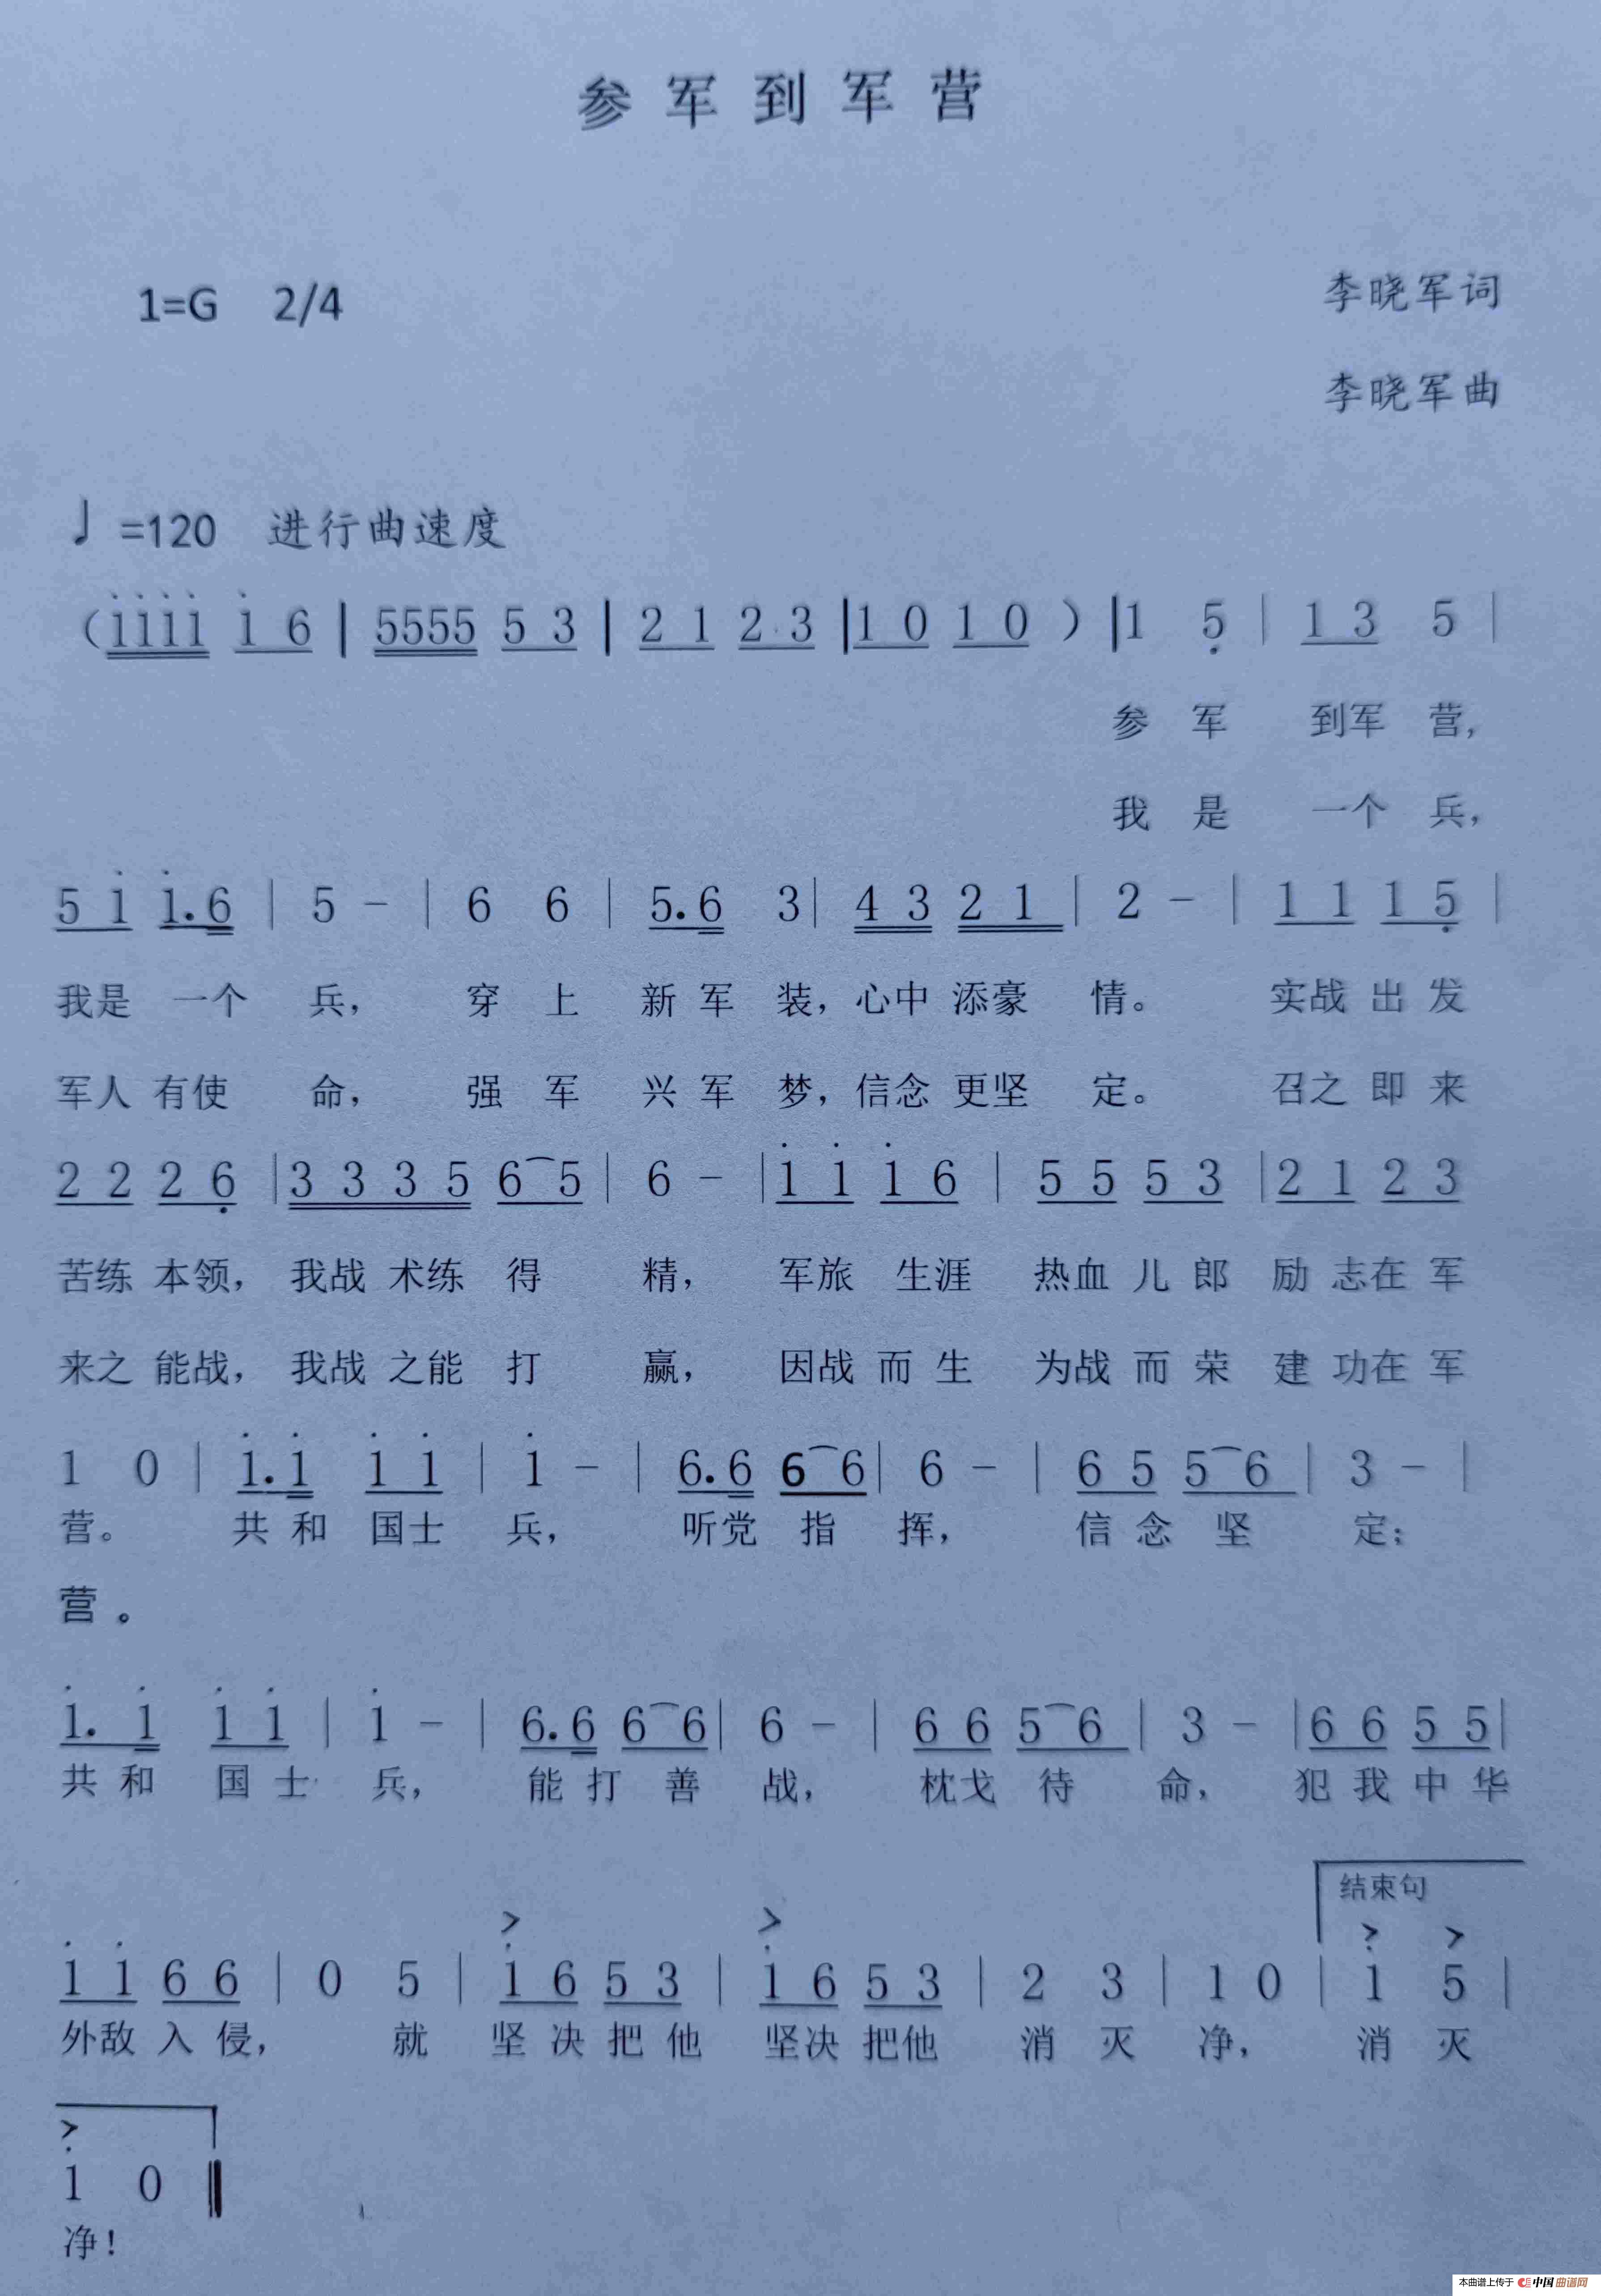 参军到军营
1=G 2/4 李晓军词
李晓军曲
♩ =120 进行曲速度
（i̇i̇i̇i̇ i̇ 6 | 5555 5 3 | 2 1 2 3 |1 0 1 0 ）|1 5̣ | 1 3 5 |
参 军 到军 营，
我 是 一个 兵，
5 i̇ i̇.6 | 5 - | 6 6 | 5.6 3| 4 3 2 1 | 2 - | 1 1 1 5̣ |
我是 一个 兵， 穿 上 新 军 装，心中 添豪 情。 实战 出 发
军人 有使 命， 强 军 兴 军 梦，信念 更坚 定。 召之 即 来
2 2 2 6̣ |3 3 3 5 6⁀5 | 6 - |i̇ i̇ i̇ 6 | 5 5 5 3 |2 1 2 3
苦练 本领， 我战 术练 得 精， 军旅 生涯 热血 儿 郎 励 志在 军
来之 能战， 我战 之能 打 赢， 因战 而 生 为战 而 荣 建 功在 军
1 0 | i̇.i̇ i̇ i̇ | i̇ - | 6.6 6⁀6| 6 - | 6 5 5⁀6 | 3 - |
营。 共 和 国士 兵， 听党 指 挥， 信 念 坚 定；
营。
i̇. i̇ i̇ i̇ | i̇ - | 6.6 6⁀6| 6 - | 6 6 5⁀6 | 3 - |6 6 5 5|
共 和 国 士 兵， 能 打 善 战， 枕戈 待 命， 犯 我 中 华
结束句
> > > >
i̇ i̇ 6 6 | 0 5 | i̇ 6 5 3 | i̇ 6 5 3 | 2 3 | 1 0 | i̇ 5 |
外敌 入 侵， 就 坚 决 把 他 坚决 把他 消 灭 净， 消 灭
>
i̇ 0 ‖
净！
本曲谱上传于 中国曲谱网